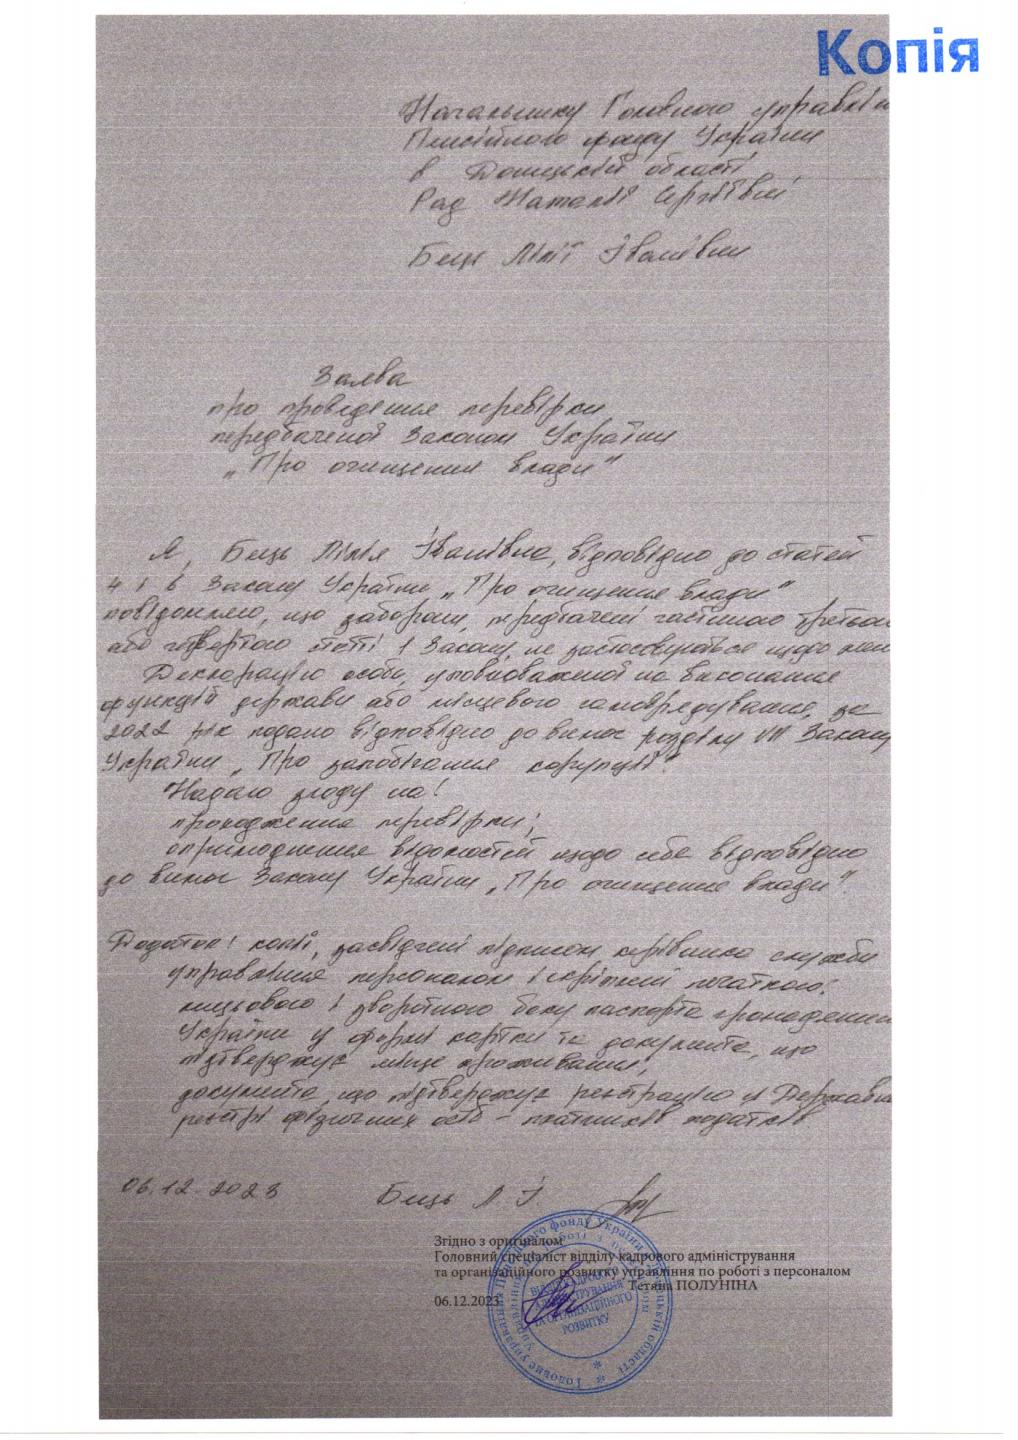 Копія
Начальнику Головного управлін
Пенсійного фонду України
в Донецькій області
Рад Наталії Сергіївні
Бець Лілії Іванівни
Заява
про проведення перевірки,
передбаченої Законом України
„Про очищення влади"
Я, Бець Лілія Іванівна, відповідно до статей
4 і 6 Закону України „Про очищення влади"
повідомляю, що заборони, передбачені частиною третьою
або четвертою статті 1 Закону, не застосовуються щодо мене
Декларацію особи, уповноваженої на виконання
функцій держави або місцевого самоврядування, за
2022 рік подано відповідно до вимог розділу VII Закону
України „Про запобігання корупції".
Надаю згоду на:
проходження перевірки;
оприлюднення відомостей щодо себе відповідно
до вимог Закону України „Про очищення влади".
Додаток: копії, засвідчені підписом керівника служби
управління персоналом і скріплені печаткою:
лицьового і зворотного боку паспорта громадянина
України у формі картки та документа, що
підтверджує місце проживання;
документа, що підтверджує реєстрацію у Державн
реєстрі фізичних осіб – платників податків
06.12.2023 Бець Л І
Згідно з оригіналом
Головний спеціаліст відділу кадрового адміністрування
та організаційного розвитку управління по роботі з персоналом
Тетяна ПОЛУНІНА
06.12.2023
ВІДДІЛ КАДРОВОГО
АДМІНІСТРУВАННЯ
ТА ОРГАНІЗАЦІЙНОГО
РОЗВИТКУ
Головне управління Пенсійного фонду України в Донецькій області